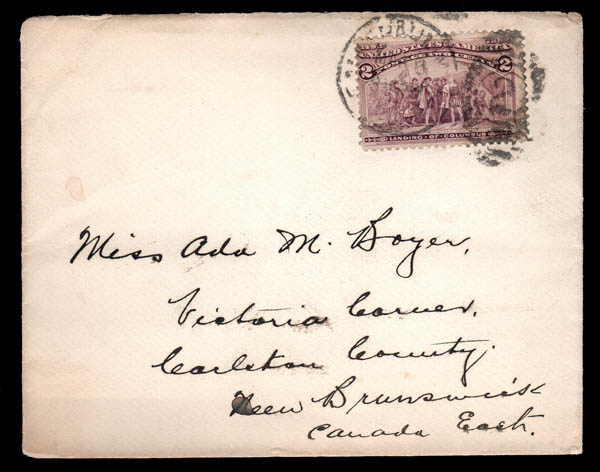 UNITED STATES OF AMERICA
POSTAGE TWO CENTS
2 2
LANDING · OF · COLUMBUS
Miss Ada M. Boyer,
Victoria Corner,
Carleton County.
New Brunswick
Canada East.